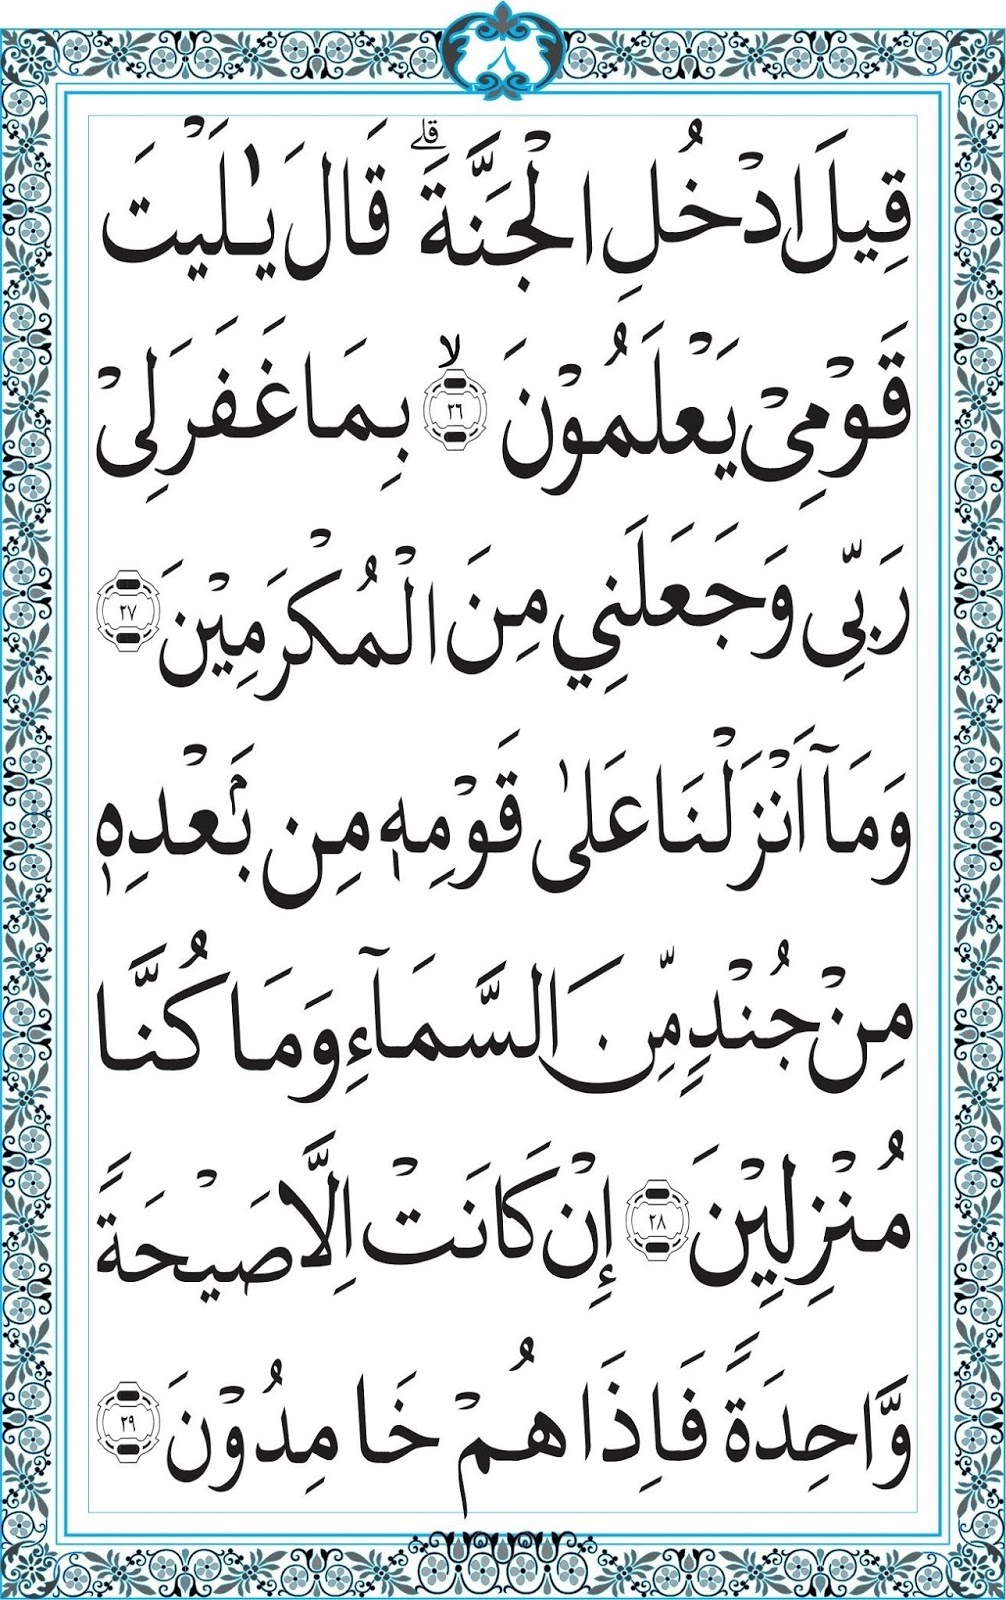 ٨
قِيلَ ادْخُلِ الْجَنَّةَ ۖ قَالَ يٰلَيْتَ
قَوْمِيْ يَعْلَمُوْنَ ۙ ٢٦ بِمَا غَفَرَ لِيْ
رَبِّي وَجَعَلَنِي مِنَ الْمُكْرَمِيْنَ ٢٧
وَمَآ اَنْزَلْنَا عَلٰى قَوْمِهٖ مِن بَۢعْدِهٖ
مِنْ جُنْدٍ مِّنَ السَّمَآءِ وَمَا كُنَّا
مُنْزِلِيْنَ ٢٨ إِنْ كَانَتْ اِلَّا صَيْحَةً
وَّاحِدَةً فَاِذَا هُمْ خَامِدُوْنَ ٢٩